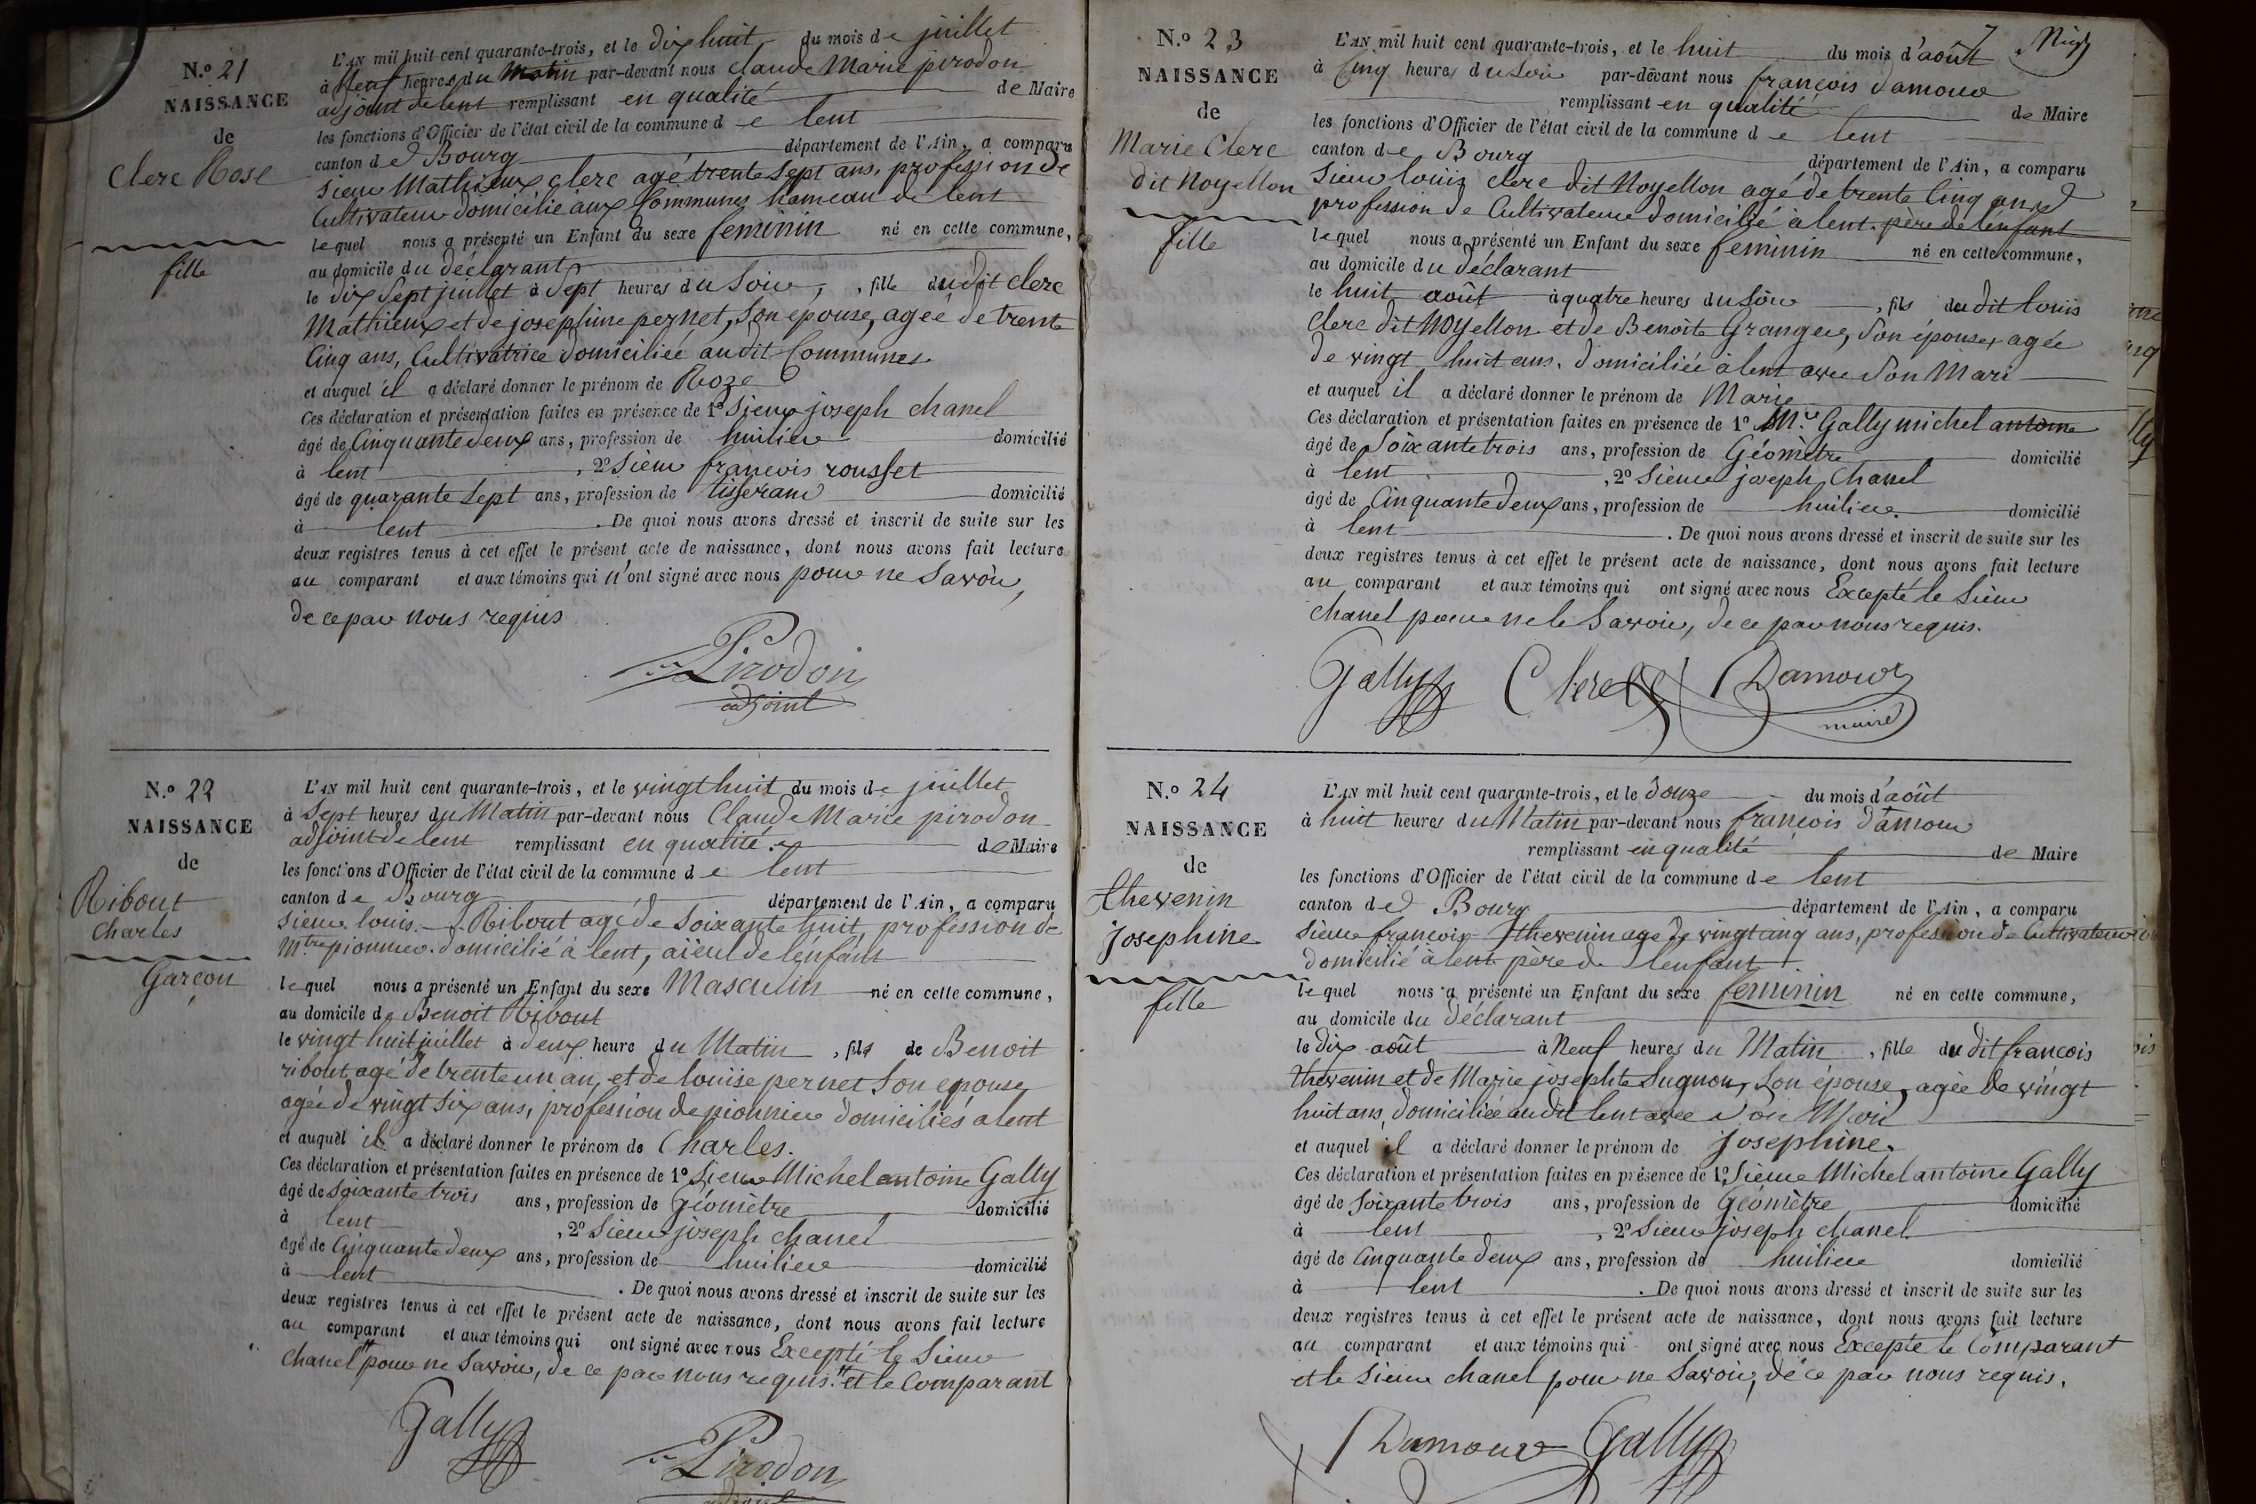 N.o 21
NAISSANCE
de
Clerc Rose
fille
L'AN mil huit cent quarante-trois, et le dix huit du mois de juillet
à Neuf heures du Matin par-devant nous Claude Marie pirodon
adjoint de lent remplissant en qualité de Maire
les fonctions d'Officier de l'état civil de la commune de lent
canton de Bourg département de l'Ain, a comparu
Sieur Mathieux Clerc agé trente Sept ans, profession de
Cultivateur domicilié aux Communes hameau de lent
lequel nous a présenté un Enfant du sexe feminin né en cette commune,
au domicile du déclarant
le dix Sept juillet à Sept heures du Soir, fille dudit Clerc
Mathieux et de josephine pernet, Son épouse, agée de trente
Cinq ans, Cultivatrice domiciliée audit Communes
et auquel il a déclaré donner le prénom de Roze
Ces déclaration et présentation faites en présence de 1o Sieur joseph chanel
âgé de Cinquante deux ans, profession de huilier domicilié
à lent, 2o Sieur françois rousset
âgé de quarante Sept ans, profession de tisserand domicilié
à lent. De quoi nous avons dressé et inscrit de suite sur les
deux registres tenus à cet effet le présent acte de naissance, dont nous avons fait lecture
au comparant et aux témoins qui n'ont signé avec nous pour ne Savoir,
de ce par nous requis
Pirodon
adjoint
N.o 22
NAISSANCE
de
Ribout
Charles
Garçon
L'AN mil huit cent quarante-trois, et le vingt huit du mois de juillet
à Sept heures du Matin par-devant nous Claude Marie pirodon
adjoint de lent remplissant en qualité de Maire
les fonctions d'Officier de l'état civil de la commune de lent
canton de Bourg département de l'Ain, a comparu
Sieur louis Ribout agé de Soixante huit, profession de
Mtre pionnier domicilié à lent, aïeul de l'enfant
lequel nous a présenté un Enfant du sexe Masculin né en cette commune,
au domicile de Benoit Ribout
le vingt huit juillet à deux heure du Matin, fils de Benoit
ribout agé de trente un an, et de louise pernet Son epouse,
agée de vingt Six ans, profession de pionnier domiciliés à lent
et auquel il a déclaré donner le prénom de Charles.
Ces déclaration et présentation faites en présence de 1o Sieur Michel antoine Gally
âgé de Soixante trois ans, profession de Géomètre domicilié
à lent, 2o Sieur joseph chanel
âgé de Cinquante deux ans, profession de huilier domicilié
à lent. De quoi nous avons dressé et inscrit de suite sur les
deux registres tenus à cet effet le présent acte de naissance, dont nous avons fait lecture
au comparant et aux témoins qui ont signé avec nous Excepté le Sieur
chanel pour ne Savoir, de ce par nous requis. et le Comparant
Gally
Pirodon
N.o 23
NAISSANCE
de
Marie Clerc
dit Noyellon
fille
7
L'AN mil huit cent quarante-trois, et le huit du mois d'août
à Cinq heures du Soir par-devant nous françois damour
remplissant en qualité de Maire
les fonctions d'Officier de l'état civil de la commune de lent
canton de Bourg département de l'Ain, a comparu
Sieur louis Clerc dit Noyellon agé de trente Cinq ans
profession de Cultivateur domicilié à lent. père de l'enfant
lequel nous a présenté un Enfant du sexe feminin né en cette commune,
au domicile du déclarant
le huit août à quatre heures du Soir, fils dudit louis
Clerc dit Noyellon et de Benoite Granger, Son épouse, agée
de vingt huit ans, domiciliée à lent avec Son Mari
et auquel il a déclaré donner le prénom de Marie
Ces déclaration et présentation faites en présence de 1o Mr. Gally michel antoine
âgé de Soixante trois ans, profession de Géomètre domicilié
à lent, 2o Sieur joseph Chanel
âgé de Cinquante deux ans, profession de huilier domicilié
à lent. De quoi nous avons dressé et inscrit de suite sur les
deux registres tenus à cet effet le présent acte de naissance, dont nous avons fait lecture
au comparant et aux témoins qui ont signé avec nous Excepté le Sieur
Chanel pour ne le Savoir, de ce par nous requis.
Gally Clerc Damour
maire
N.o 24
NAISSANCE
de
thevenin
josephine
fille
L'AN mil huit cent quarante-trois, et le douze du mois d'août
à huit heures du Matin par-devant nous françois damour
remplissant en qualité de Maire
les fonctions d'Officier de l'état civil de la commune de lent
canton de Bourg département de l'Ain, a comparu
Sieur françois thevenin agé de vingt cinq ans, profession de Cultivateur
domicilié à lent père de l'enfant
lequel nous a présenté un Enfant du sexe feminin né en cette commune,
au domicile du déclarant
le dix août à Neuf heures du Matin, fille dudit françois
thevenin et de Marie josephte Sugnon, Son épouse, agée de vingt
huit ans, domiciliée audit lent avec Son Mari
et auquel il a déclaré donner le prénom de josephine.
Ces déclaration et présentation faites en présence de 1o Sieur Michel antoine Gally
âgé de Soixante trois ans, profession de Géomètre domicilié
à lent, 2o Sieur joseph chanel
âgé de Cinquante deux ans, profession de huilier domicilié
à lent. De quoi nous avons dressé et inscrit de suite sur les
deux registres tenus à cet effet le présent acte de naissance, dont nous avons fait lecture
au comparant et aux témoins qui ont signé avec nous Excepté le Comparant
et le Sieur chanel pour ne Savoir, de ce par nous requis.
Damour Gally